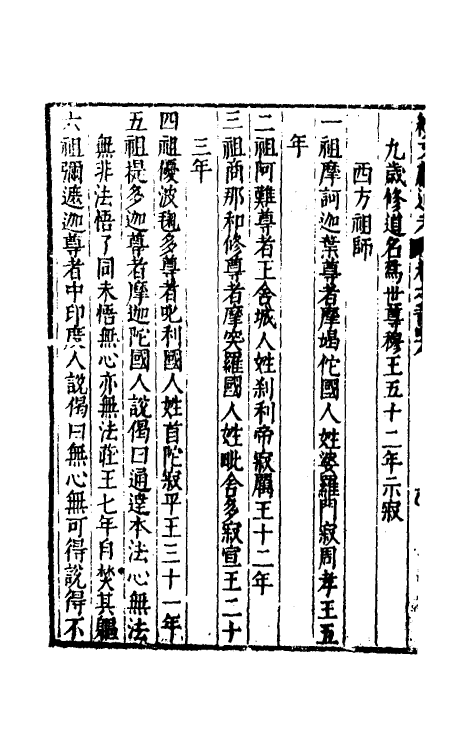 九歲修道名爲世尊穆王五十二年示寂
西方祖師
一祖摩訶迦葉尊者摩竭佗國人姓婆羅門寂周孝王五
年
二祖阿難尊者王舍城人姓刹利帝寂厲王十二年
三祖商那和修尊者摩突羅國人姓毗舍多寂宣王二十
三年
四祖優波毱多尊者吒利國人姓首陀寂平王三十一年
五祖提多迦尊者摩迦陀國人說偈曰通達本法心無法
無非法悟了同未悟無心亦無法莊王七年自焚其軀
六祖彌遮迦尊者中印度人說偈曰無心無可得說得不